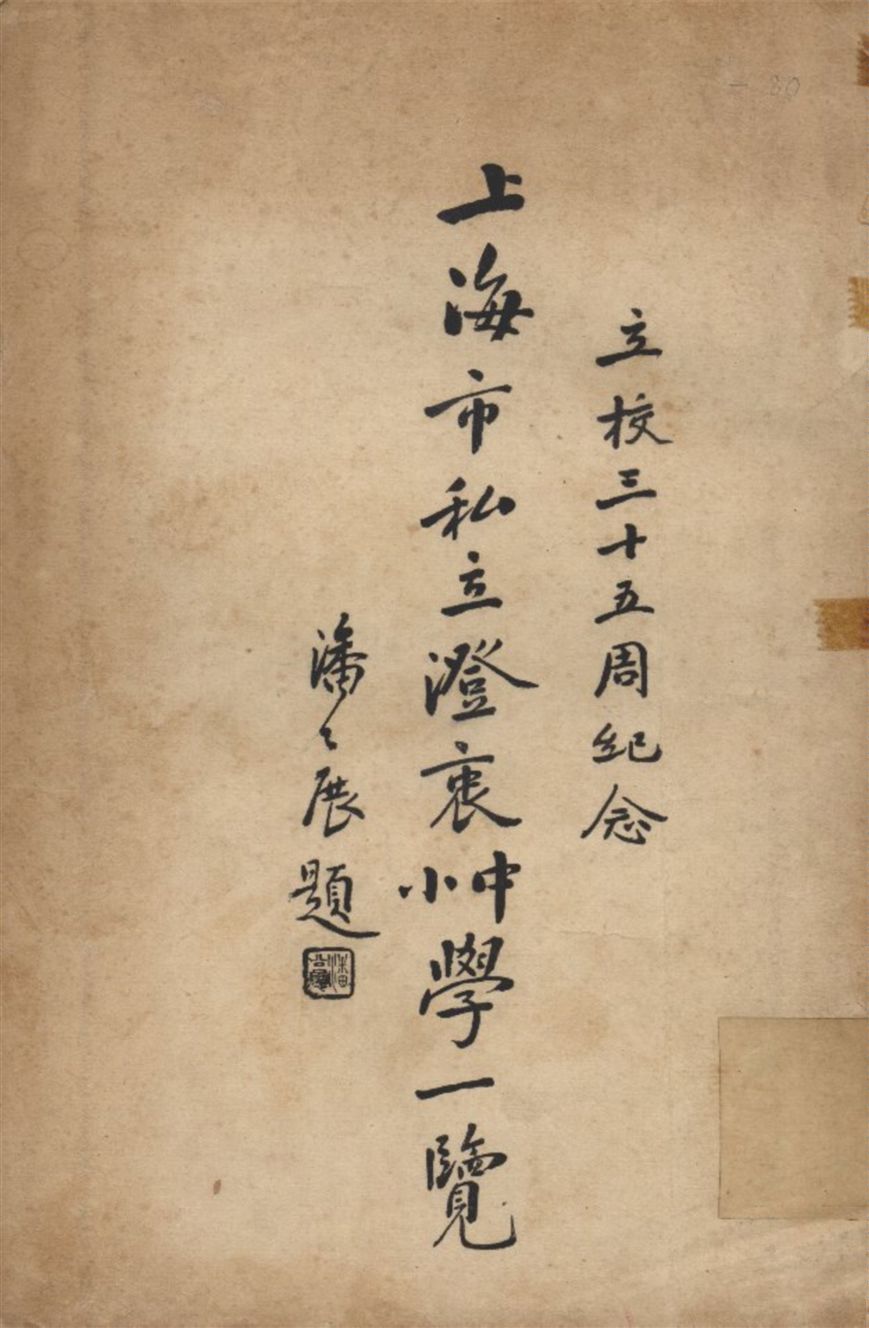 80
立校三十五周紀念
上海市私立澄衷中小學一覽
潘公展題